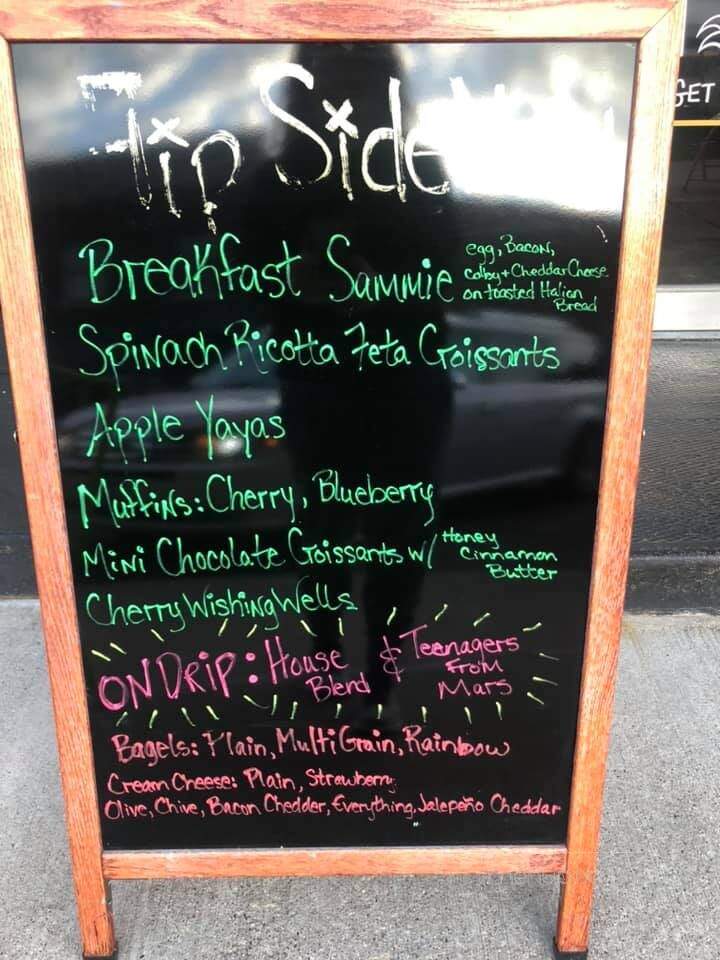 Flip Side
Breakfast Sammie egg, Bacon,
colby + Cheddar Cheese
on toasted Italian
Bread
Spinach Ricotta Feta Croissants
Apple Yayas
Muffins: Cherry, Blueberry
Mini Chocolate Croissants w/ Honey
Cinnamon
Butter
Cherry Wishing Wells
ON DRiP: House Blend & Teenagers From Mars
Bagels: Plain, Multi Grain, Rainbow
Cream Cheese: Plain, Strawberry,
Olive, Chive, Bacon Chedder, Everything, Jalepeño Cheddar
GET